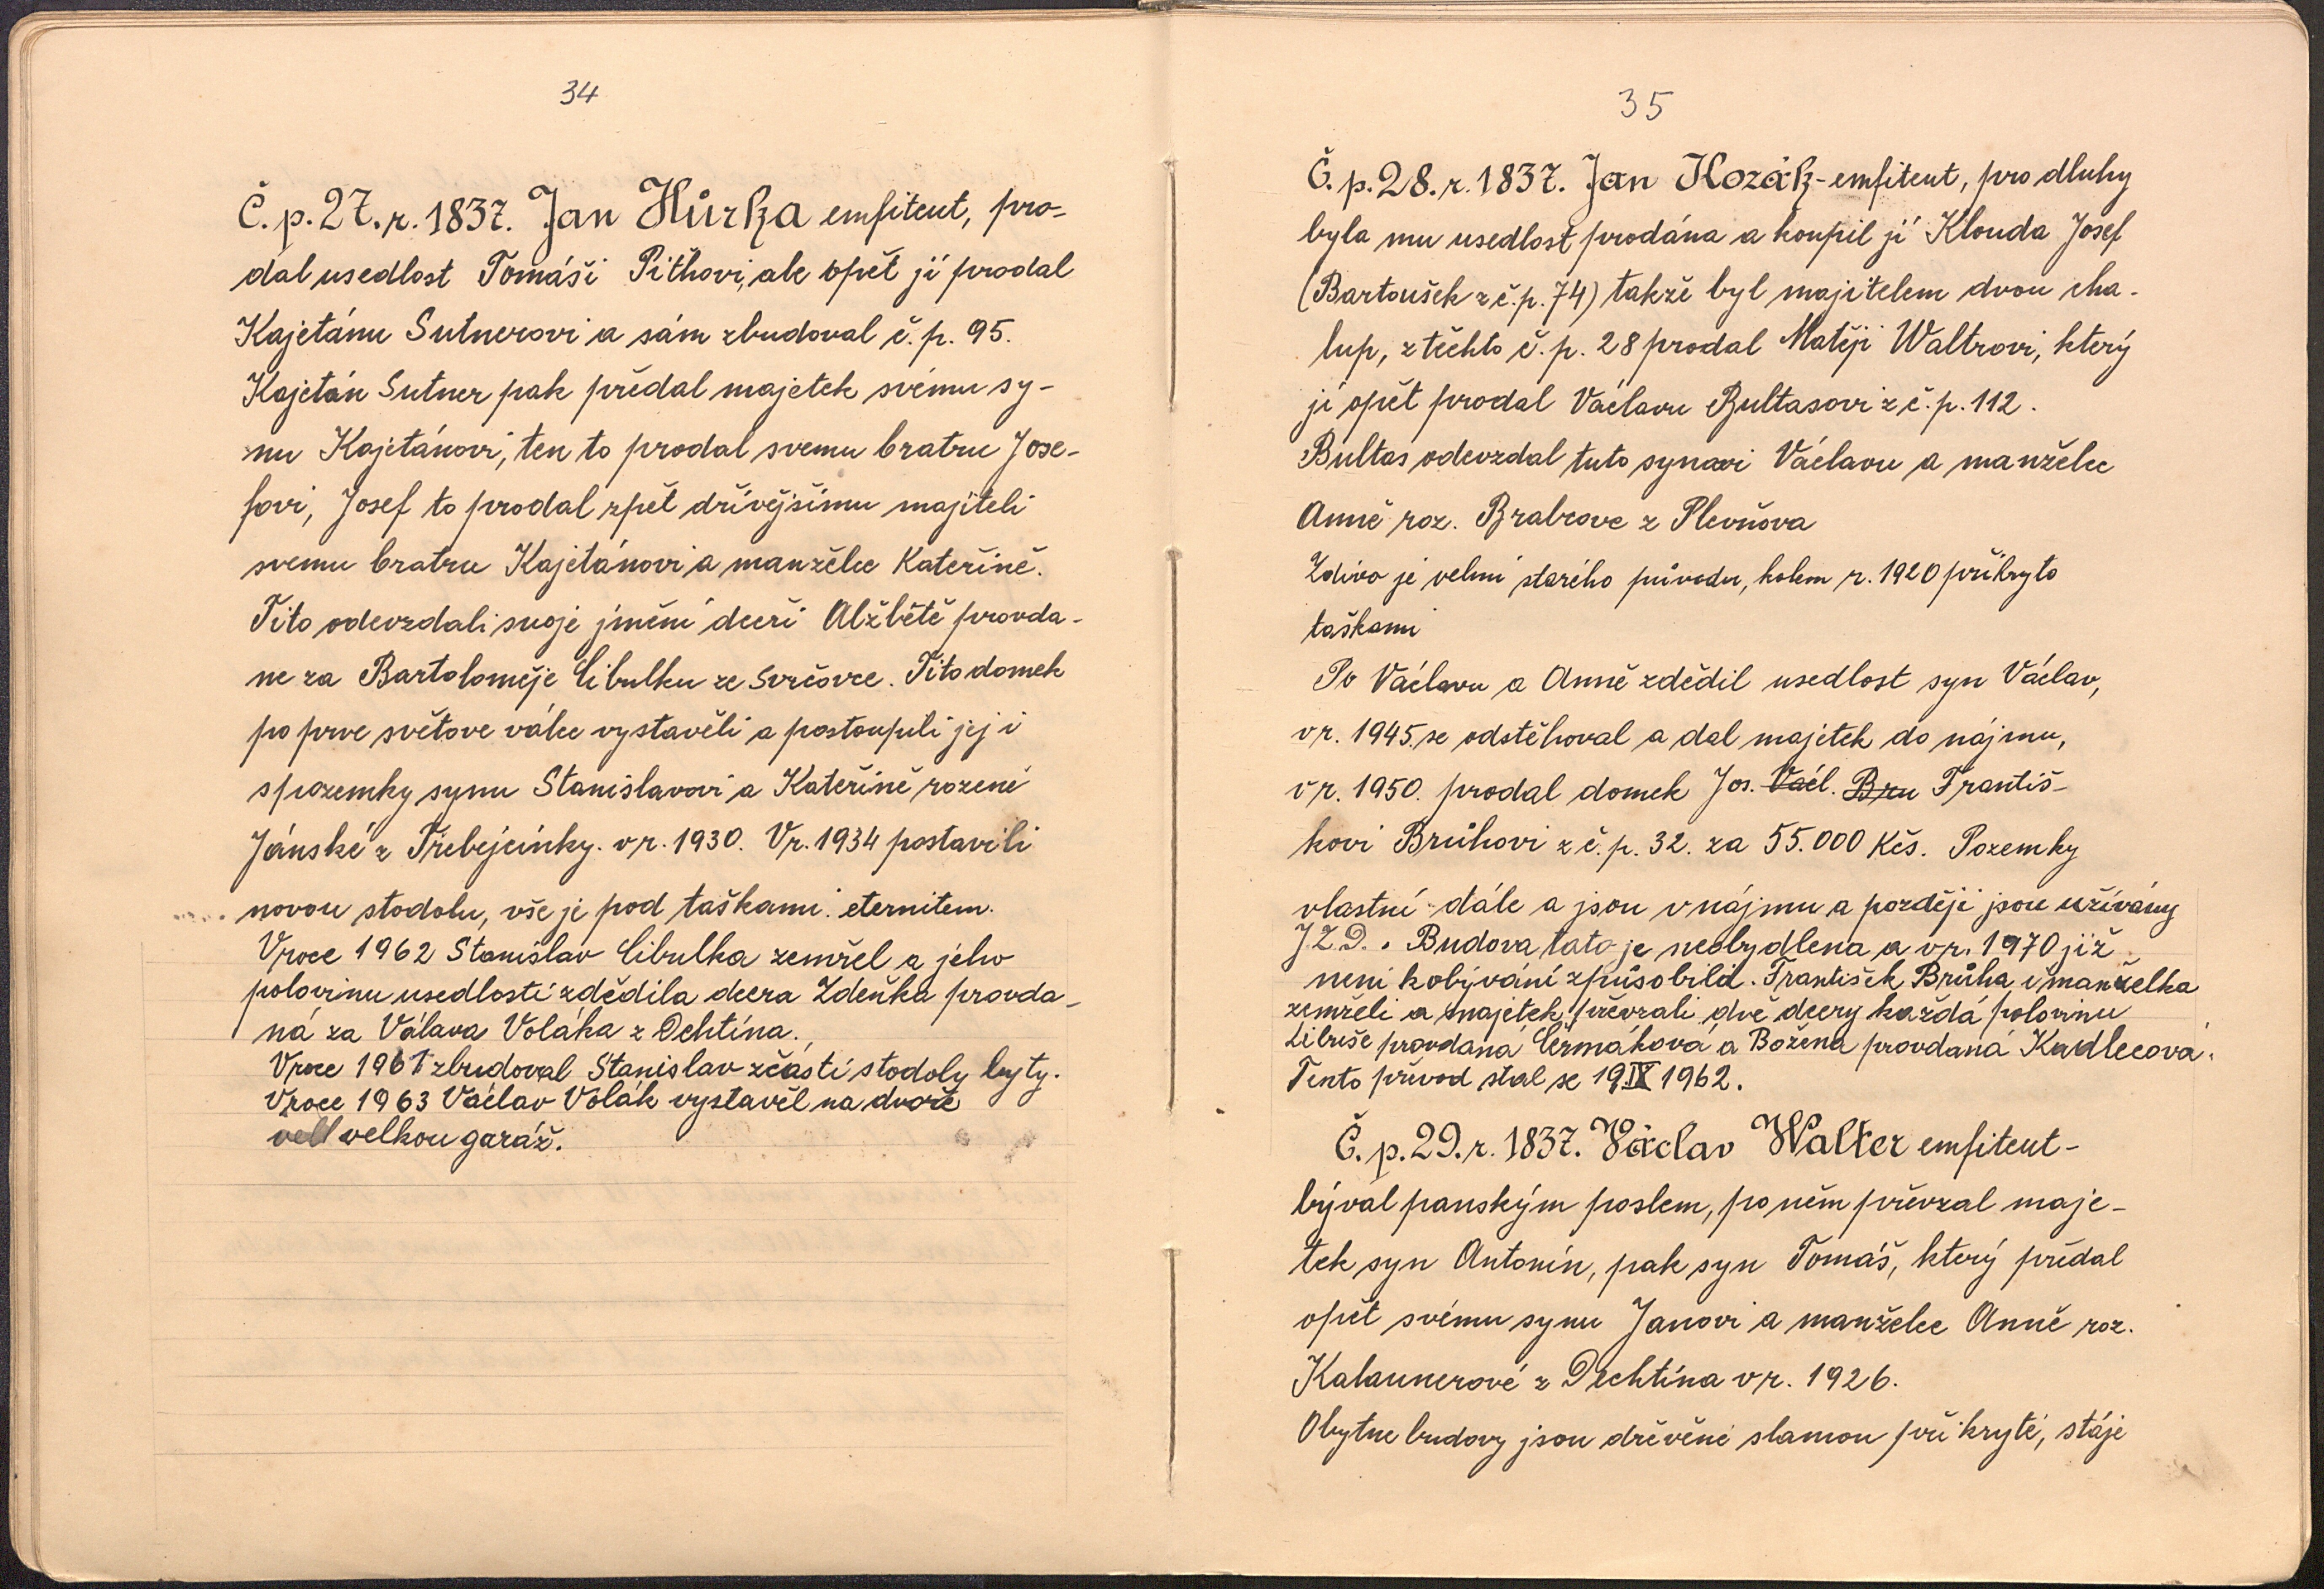 34
Č. p. 27. r. 1837. Jan Hůrka emfiteut, pro-
dal usedlost Tomáši Pithovi, ale opět ji prodal
Kajetánu Sutnerovi a sám zbudoval č. p. 95.
Kajetán Sutner pak předal majetek svému sy-
nu Kajetánovi, ten to prodal svemu bratru Jose-
fovi, Josef to prodal zpět dřívějšímu majiteli
svemu bratru Kajetánovi a manželce Kateřině.
Tito odevzdali svoje jmění dceři Alžbětě provda-
ne za Bartoloměje Cibulku ze Svrčovce. Tito domek
po prve světove válce vystavěli a postoupili jej i
s pozemky synu Stanislavovi a Kateřině rozené
Jánské z Třebýcinky. v r. 1930. V r. 1934 postavili
novou stodolu, vše je pod taškami. eternitem.
V roce 1962 Stanislav Cibulka zemřel a jeho
polovinu usedlosti zdědila dcera Zdeňka provda-
ná za Válava Voláka z Dehtína.
V roce 1961 zbudoval Stanislav z části stodoly byty.
V roce 1963 Václav Volák vystavěl na dvoře
vel velkou garáž.
35
Č. p. 28. r. 1837. Jan Kozák - emfiteut, pro dluhy
byla mu usedlost prodána a koupil ji Klouda Josef
(Bartoušek z č. p. 74) takže byl majitelem dvou cha-
lup, z těchto č. p. 28 prodal Matěji Waltrovi, který
ji opět prodal Václavu Bultasovi z č. p. 112.
Bultas odevzdal tuto synovi Václavu a manželce
Anně roz. Brabcove z Plevňova
Zdivo je velmi starého původu, kolem r. 1920 přikryto
taškami
Po Václavu a Anně zdědil usedlost syn Václav,
v r. 1945. se odstěhoval a dal majetek do nájmu,
v r. 1950. prodal domek Jos. Václ. Bru Františ-
kovi Brůhovi z č. p. 32. za 55.000 Kčs. Pozemky
vlastní dále a jsou v nájmu a později jsou užívány
J.Z.D.. Budova tato je neobydlena a v r. 1970 již
není k obývání způsobilá. František Brůha i manželka
zemřeli a majetek převzali dvě dcery každá polovinu
Libuše provdaná Čermáková a Božena provdaná Kadlecová.
Tento převod stal se 19.IX 1962.
Č. p. 29. r. 1837. Václav Walter emfiteut -
býval panským poslem, po něm převzal maje-
tek syn Antonín, pak syn Tomáš, který předal
opět svému synu Janovi a manželce Anně roz.
Kalaunerové z Dechtína v r. 1926.
Obytne budovy jsou dřevěné slamou přikryté, stáje